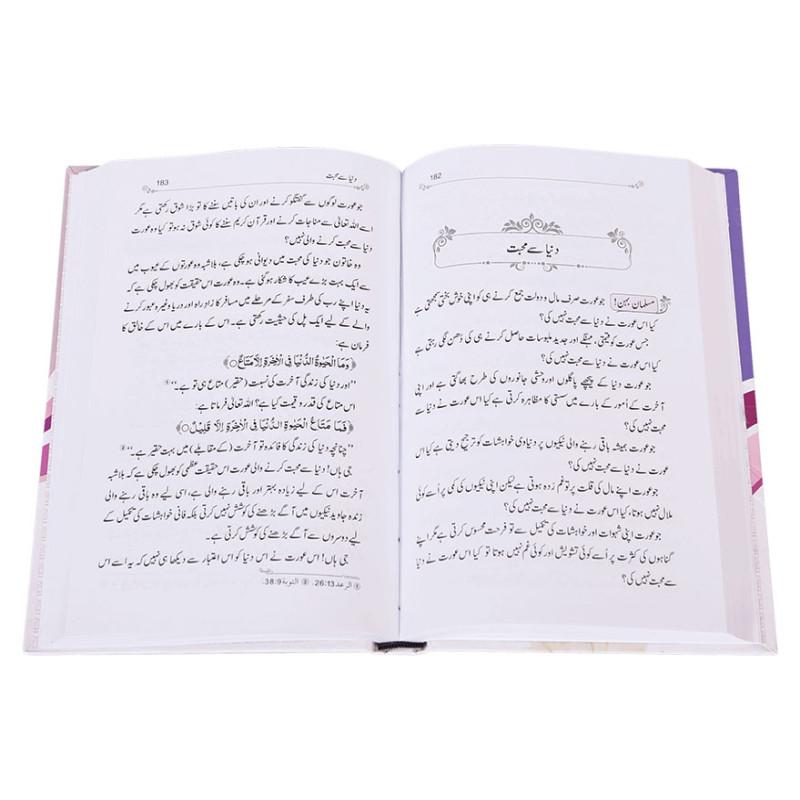 182
دنیا سے محبت
مسلمان بہن! جو عورت صرف مال و دولت جمع کرنے ہی کو اپنی خوش بختی سمجھتی ہے
کیا اس عورت نے دنیا سے محبت نہیں کی؟
جس عورت کو قیمتی، مہنگے اور جدید ملبوسات حاصل کرنے ہی کی دُھن لگی رہتی ہے
کیا اس عورت نے دنیا سے محبت نہیں کی؟
جو عورت دنیا کے پیچھے پاگلوں اور وحشی جانوروں کی طرح بھاگتی ہے اور اپنی
آخرت کے اُمور کے بارے میں سستی کا مظاہرہ کرتی ہے کیا اس عورت نے دنیا سے محبت نہیں
کی؟
جو عورت ہمیشہ باقی رہنے والی نیکیوں پر دنیاوی خواہشات کو ترجیح دیتی ہے کیا اس
عورت نے دنیا سے محبت نہیں کی؟
جو عورت اپنے مال کی قلت پر تو غم زدہ ہوتی ہے لیکن اپنی نیکیوں کی کمی پر اُسے کوئی
ملال نہیں ہوتا، کیا اس عورت نے دنیا سے محبت نہیں کی؟
جو عورت اپنی شہوات اور خواہشات کی تکمیل سے تو فرحت محسوس کرتی ہے مگر اپنے
گناہوں کی کثرت پر اُسے کوئی تشویش اور کوئی غم نہیں ہوتا تو کیا اس عورت نے دنیا
سے محبت نہیں کی؟
دنیا سے محبت 183
جو عورت لوگوں سے گفتگو کرنے اور ان کی باتیں سننے کا تو بڑا شوق رکھتی ہے مگر
اسے اللہ تعالیٰ سے مناجات کرنے اور قرآن کریم سننے کا کوئی شوق نہ ہو تو کیا وہ عورت
دنیا سے محبت کرنے والی نہیں؟
وہ خاتون جو دنیا کی محبت میں دیوانی ہو چکی ہے، بلاشبہ وہ عورتوں کے عیوب میں
سے ایک بہت بڑے عیب کا شکار ہو گئی ہے۔ وہ عورت اس حقیقت کو بھول چکی ہے کہ
یہ دنیا اپنے رب کی طرف سفر کے مرحلے میں مسافر کا زادِ راہ اور دریا وغیرہ عبور کرنے
والے کے لیے ایک پل کی حیثیت رکھتی ہے۔ اس کے بارے میں اس کے خالق کا
فرمان ہے:
﴿وَمَا الْحَيٰوةُ الدُّنْيَا فِى الْاٰخِرَةِ اِلَّا مَتَاعٌ﴾
”اور دنیا کی زندگی آخرت کی نسبت (حقیر) متاع ہی تو ہے۔“ ①
اس متاع کی قدر و قیمت کیا ہے؟ اللہ تعالیٰ فرماتا ہے:
﴿فَمَا مَتَاعُ الْحَيٰوةِ الدُّنْيَا فِى الْاٰخِرَةِ اِلَّا قَلِيْلٌ﴾
”چنانچہ دنیا کی زندگی کا فائدہ تو آخرت (کے مقابلے) میں بہت حقیر ہے۔“ ②
جی ہاں! دنیا سے محبت کرنے والی عورت اس حقیقت عظمیٰ کو بھول چکی ہے کہ بلاشبہ
آخرت اس کے لیے زیادہ بہتر اور باقی رہنے والی ہے، اسی لیے وہ باقی رہنے والی
زندہ جاوید نیکیوں میں آگے بڑھنے کی کوشش نہیں کرتی بلکہ فانی خواہشات کی تکمیل کے
لیے دوسروں سے آگے بڑھنے کی کوشش کرتی ہے۔
جی ہاں! اس عورت نے اس دنیا کو اس اعتبار سے دیکھا ہی نہیں کہ یہ اسے اس
① الرعد 26:13. ② التوبة 38:9.